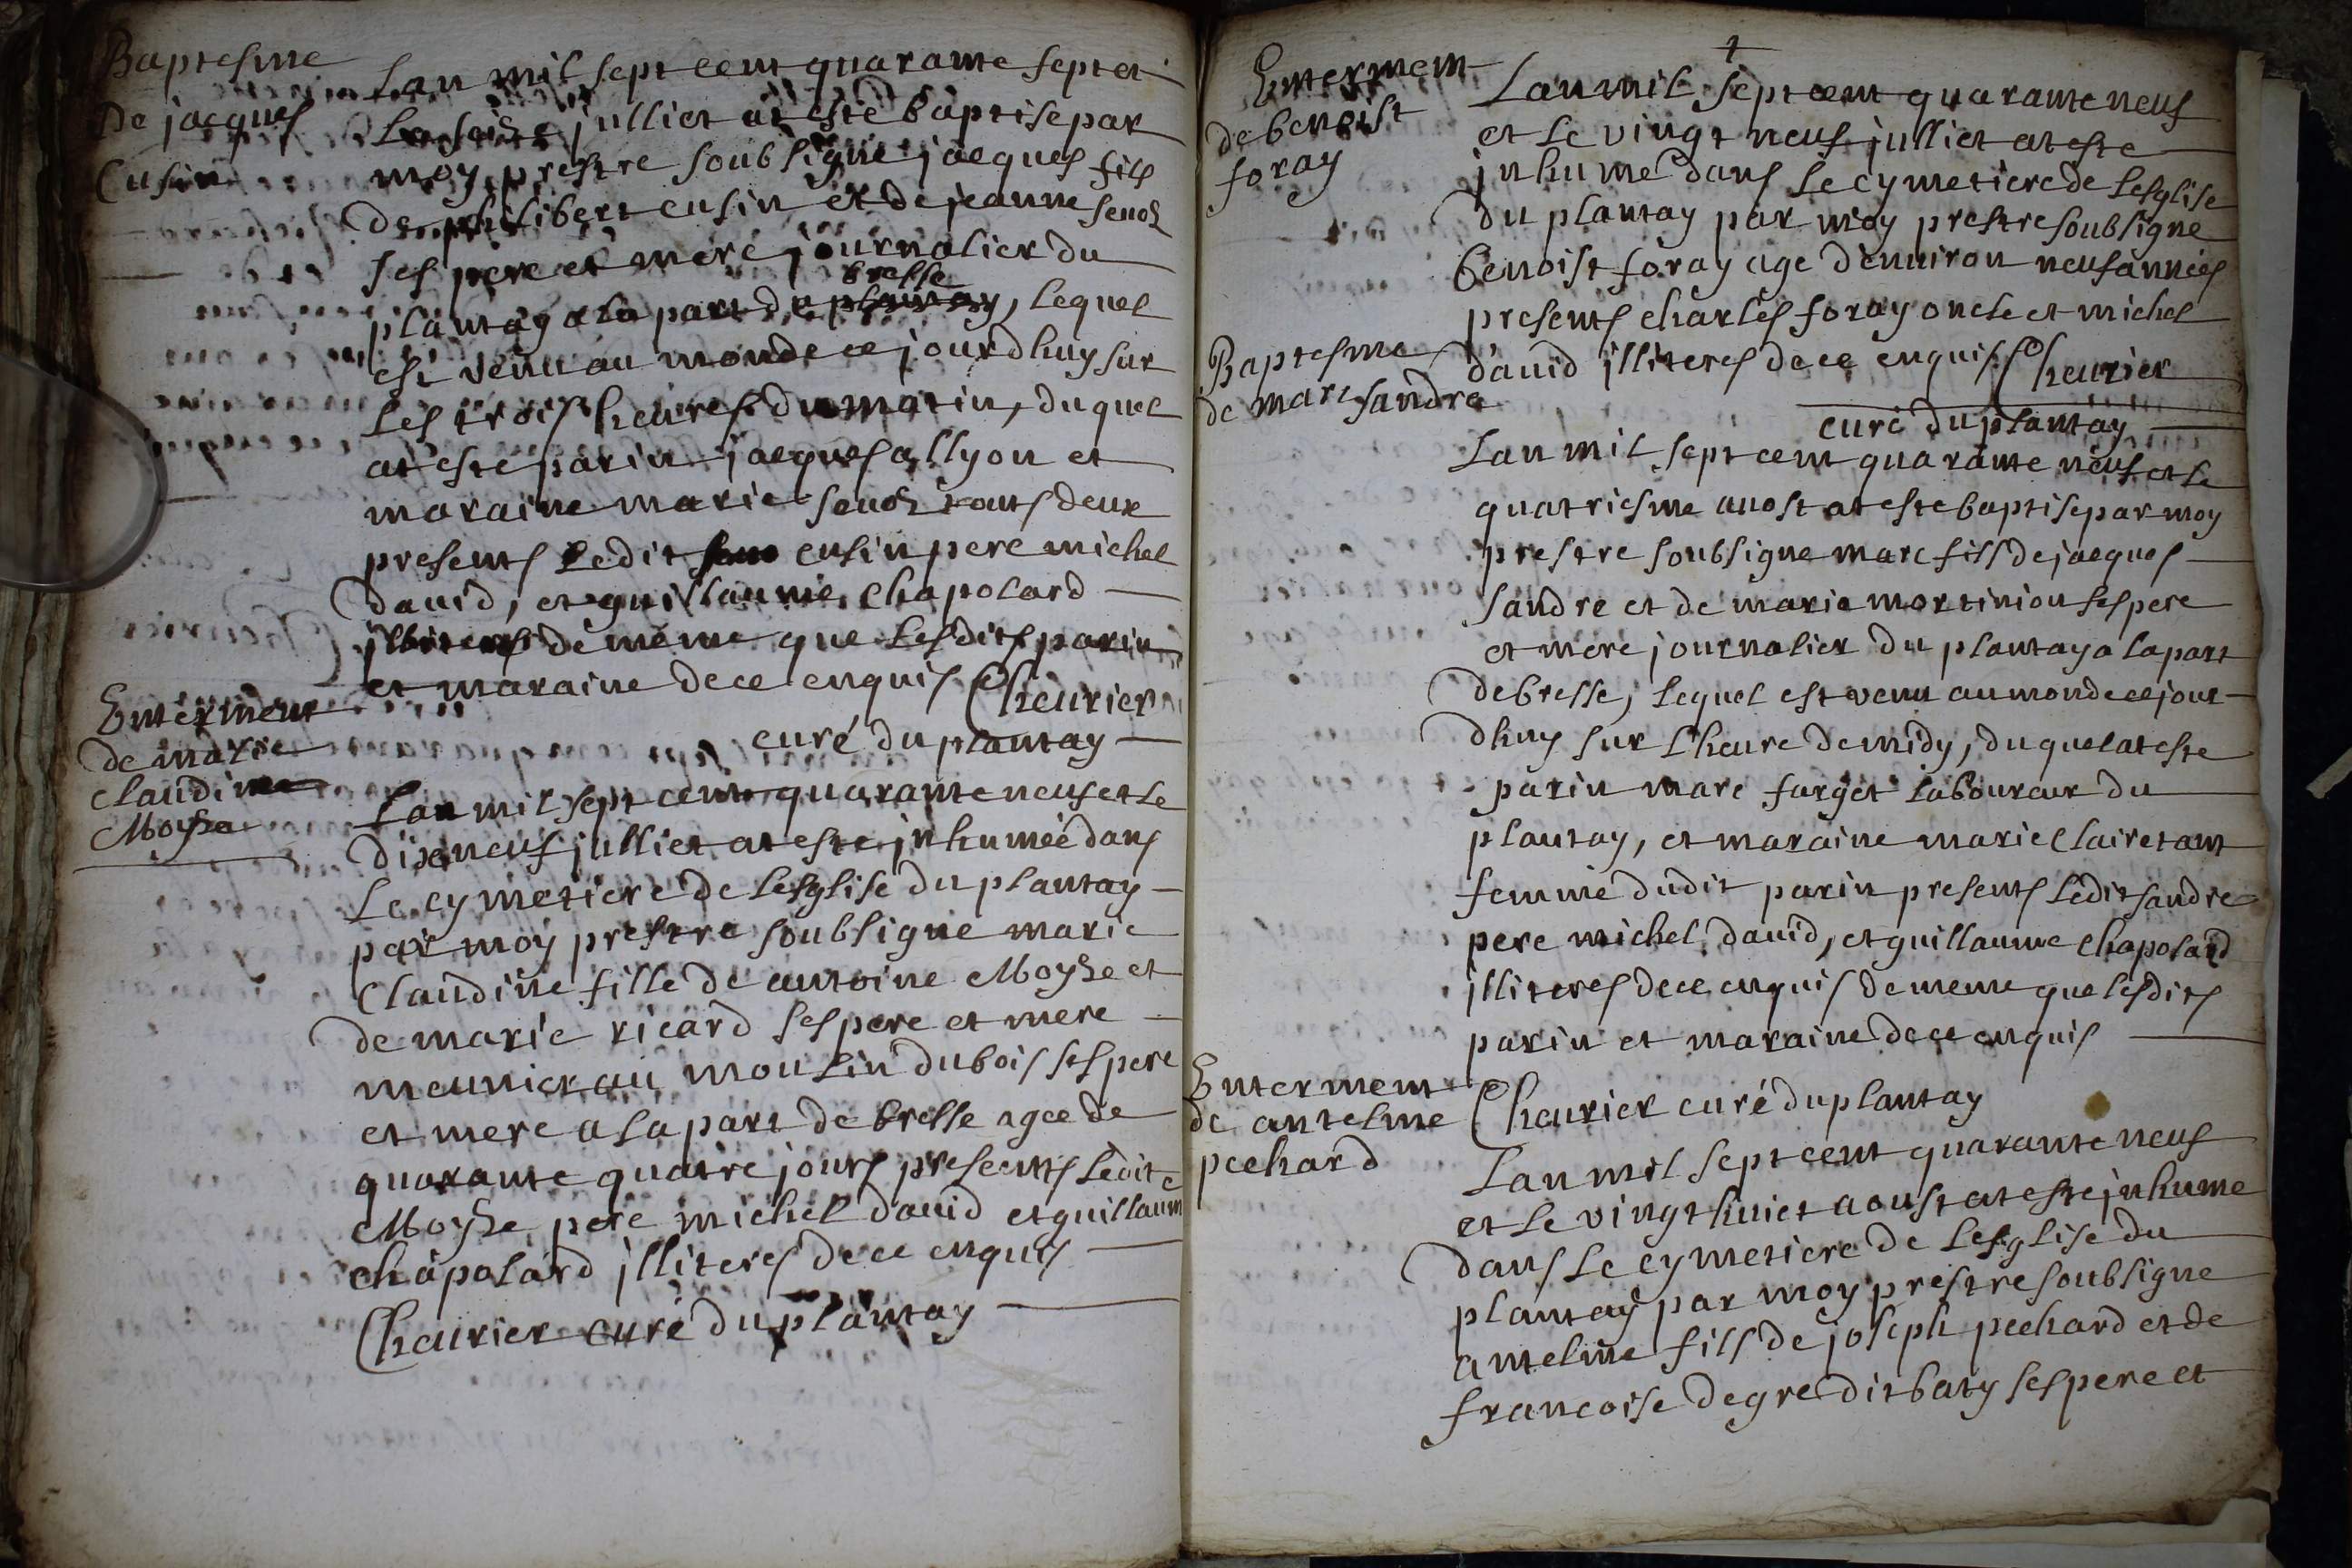 Baptesme
de jacques
Cusin
Lan mil sept cent quarante sept et
le seize julliet at esté baptise par
moy prestre soubsigne jacques fils
de philibert cusin et de jeanne
ses pere et mere journalier du
plantay a la part de bresse, lequel
est venu au monde ce jourdhuy sur
les trois heures du matin, duquel
at esté parin jacques allyon et
maraine marie tous deux
presents ledit cusin pere michel
david, et guillaume Chapolard
jlliteres de méme que lesdits parin
et maraine de ce enquis Cheurier
curé du plantay
Enterment
de marie
claudine
Moyse
Lan mil sept cent quarante neuf et le
dixneuf julliet at este jnhumée dans
le cymetiere de lesglise du plantay
par moy prestre soubsigne marie
Claudine fille de antoine Moyse et
de marie ricard ses pere et mere
meunier au moulin du bois ses pere
et mere a la part de bresse agee de
quarante quatre jours presents ledit
Moyse pere michel david et guillaum
chapolard jlliteres de ce enquis
Cheurier curé du plantay
Enterment
de benoist
foray
Lan mil sept cent quarante neuf
et le vingt neuf julliet at este
jnhumé dans le cymetiere de lesglise
du plantay par moy prestre soubsigne
benoist foray age denuiron neuf années
presents charles foray oncle et michel
dauid jlliteres de ce enquis Cheurier
curé du plantay
Baptesme
de marc sandre
Lan mil sept cent quarante neuf et le
quatriesme auost at este baptise par moy
prestre soubsigne marc fills de jacques
sandre et de marie mortinion ses pere
et mere journalier du plantay a la part
de bresse, lequel est venu au monde ce jour
dhuy sur lheure de midy, duquel at este
parin marc farget laboureur du
plantay, et maraine marie Clairetant
femme dudit parin presents ledit sandre
pere michel dauid, et guillaume Chapolard
jlliteres de ce enquis de meme que lesdits
parin et maraine de ce enquis
Cheurier curé du plantay
Enterment
de antelme
pechard
Lan mil sept cent quarante neuf
et le vingt huict aoust at este jnhume
dans le cymetiere de lesglise du
plantay par moy prestre soubsigne
antelme fills de joseph pechard et de
francoise degre dit baty ses pere et